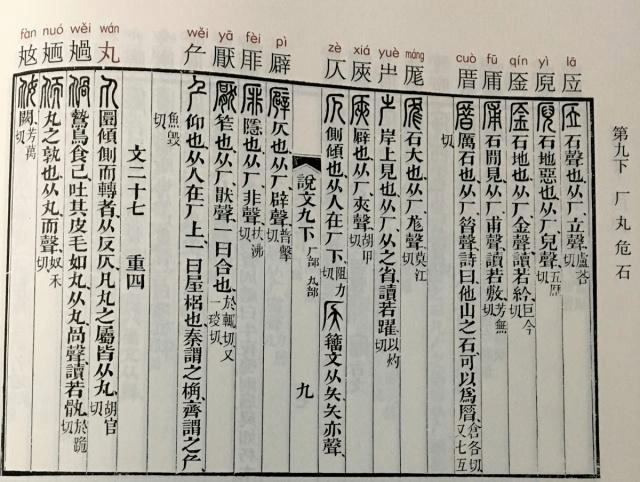 第九下 厂丸危石
lā yì qín fū cuò máng yuè xiá zè pì fèi yā wěi wán wěi nuó fàn
㕇 㕋 㕊 厝 厖 仄 厞 厭 厃 丸
石聲也从厂立聲盧荅切
石地惡也从厂兒聲五歷切
石地也从厂金聲讀若紟巨今切
石閒見从厂甫聲讀若敷芳無切
厲石也从厂昝聲詩曰他山之石可以爲厝倉各切又七互切
石大也从厂尨聲莫江切
岸上見也从厂从之省讀若躍以灼切
辟也从厂夾聲胡甲切
側傾也从人在厂下阻力切 籒文从夨夨亦聲
說文九下 厂部 丸部 九
仄也从厂辟聲普擊切
隱也从厂非聲扶沸切
笮也从厂猒聲一曰合也於輒切又一琰切
仰也从人在厂上一曰屋梠也秦謂之桷齊謂之厃
魚毀切
文二十七 重四
圜傾側而轉者从反仄凡丸之屬皆从丸胡官切
鷙鳥食已吐其皮毛如丸从丸咼聲讀若骫於跪切
丸之孰也从丸而聲奴禾切
闕芳萬切